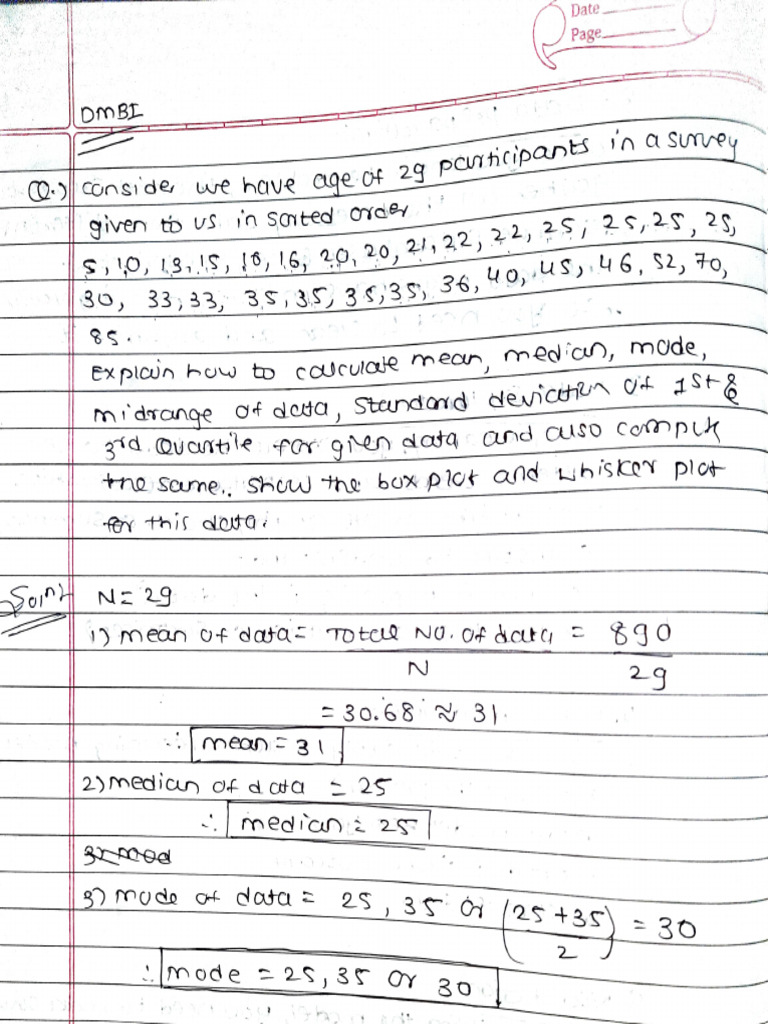 Date
Page
DMBI
Q.) Consider we have age of 29 participants in a survey
given to us in sorted order.
5, 10, 13, 15, 16, 16, 20, 20, 21, 22, 22, 25, 25, 25, 25,
30, 33, 33, 35, 35, 35, 35, 36, 40, 45, 46, 52, 70,
85.
Explain how to calculate mean, median, mode,
midrange of data, standard deviation of 1st &
3rd Quartile for given data and also compute
the same.. show the box plot and whisker plot
for this data.
Soln) N = 29
1) mean of data = Total No. of data / N = 890 / 29
= 30.68 ≈ 31.
∴ mean = 31
2) median of data = 25
∴ median = 25
3) mod
3) mode of data = 25, 35 or (25 + 35 / 2) = 30
∴ mode = 25, 35 or 30